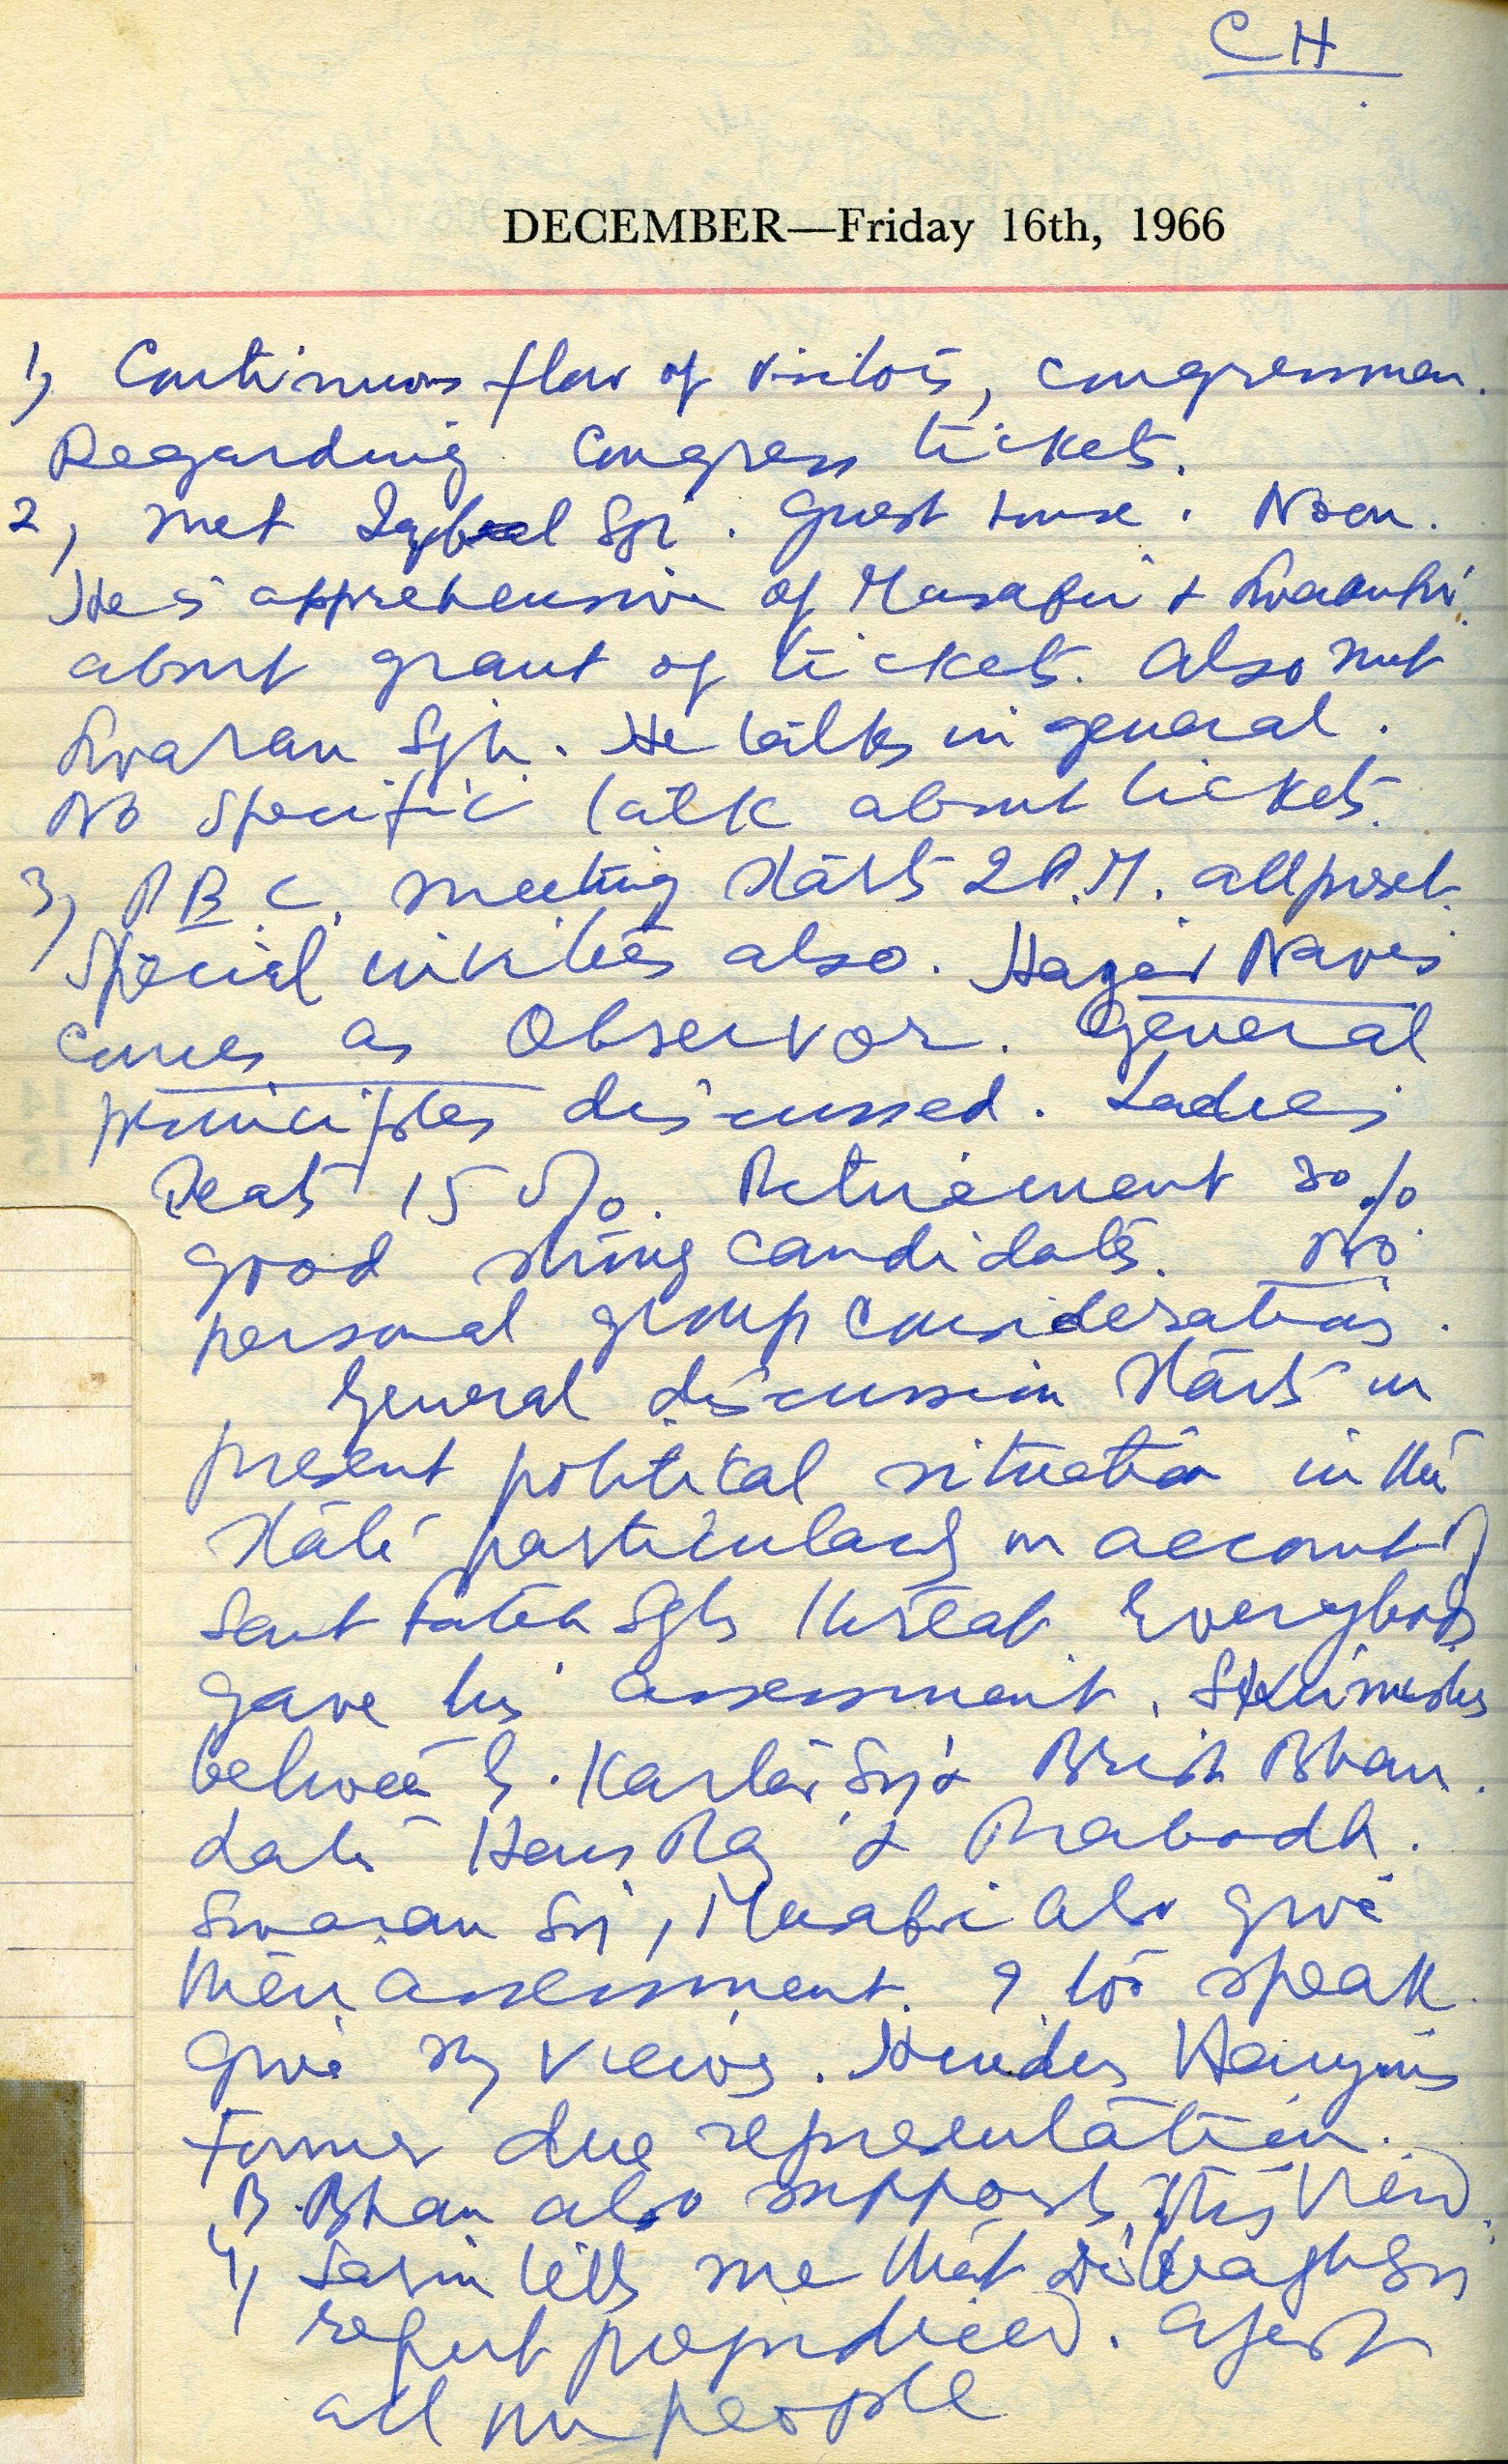 CH
DECEMBER—Friday 16th, 1966
1) Continuous flow of visitors, congressmen.
Regarding Congress tickets.
2, met Iqbal Sgh. Guest House. Noon.
He is apprehensive of Musafir &
about grant of tickets. Also met
Swaran Sgh. He talks in general.
No specific talk about tickets.
3) P.B.C. meeting starts 2 P.M. all present.
Special invitees also.
comes as Observor. General
principles discussed. Ladies
Seats 15%. Retirement 30%
good strong candidates. No
personal group considerations.
General discussion starts on
present political situation in the
State particularly on account of
Sant Fateh Sgh threat. Everybody
gave his assessment. Skirmishes
between G. Kartar Sgh & Brish Bhan.
Later Hans Raj & Prabodh.
Swaran Sgh, Musafir also give
their assessment. I too speak
give my views. Hindus Harijans
former due representation.
B. Bhan also supports this view.
4) Sarin tells me that Sgh
report prejudiced. against
all our people